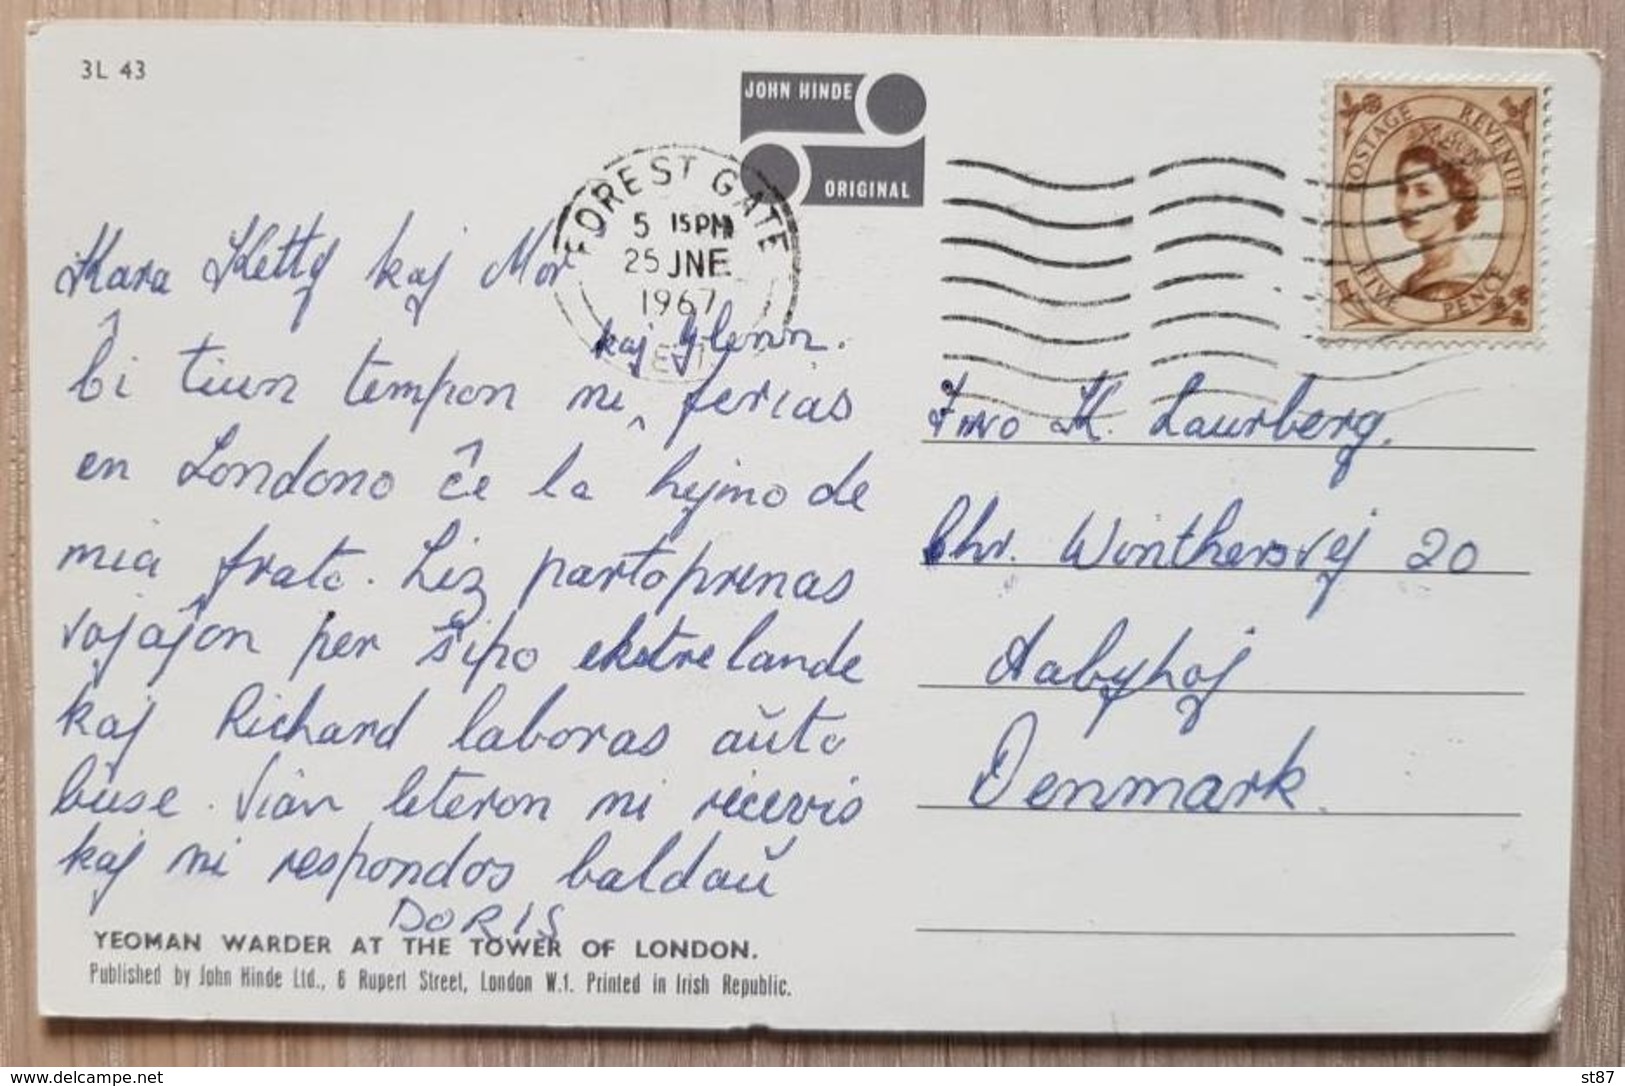 3L 43
JOHN HINDE
ORIGINAL
FOREST GATE
5 15PM
25 JNE
1967
E.7
POSTAGE REVENUE
FIVE PENCE
Kara Ketty kaj Mor
kaj Glenn.
Ĉi tiun tempon ni ‸ ferias
en Londono ĉe la hejmo de
mia frato. Liz partoprenas
vojaĝon per ŝipo ekstrelande
kaj Richard laboras aŭto
buse. Vian leteron ni ricevis
kaj ni respondos baldaŭ
DORIS
K. Laurberg.
Chr. Winthersvej 20
Aabyhøj
Denmark.
YEOMAN WARDER AT THE TOWER OF LONDON.
Published by John Hinde Ltd., 6 Rupert Street, London W.1. Printed in Irish Republic.
delcampe.net
st87